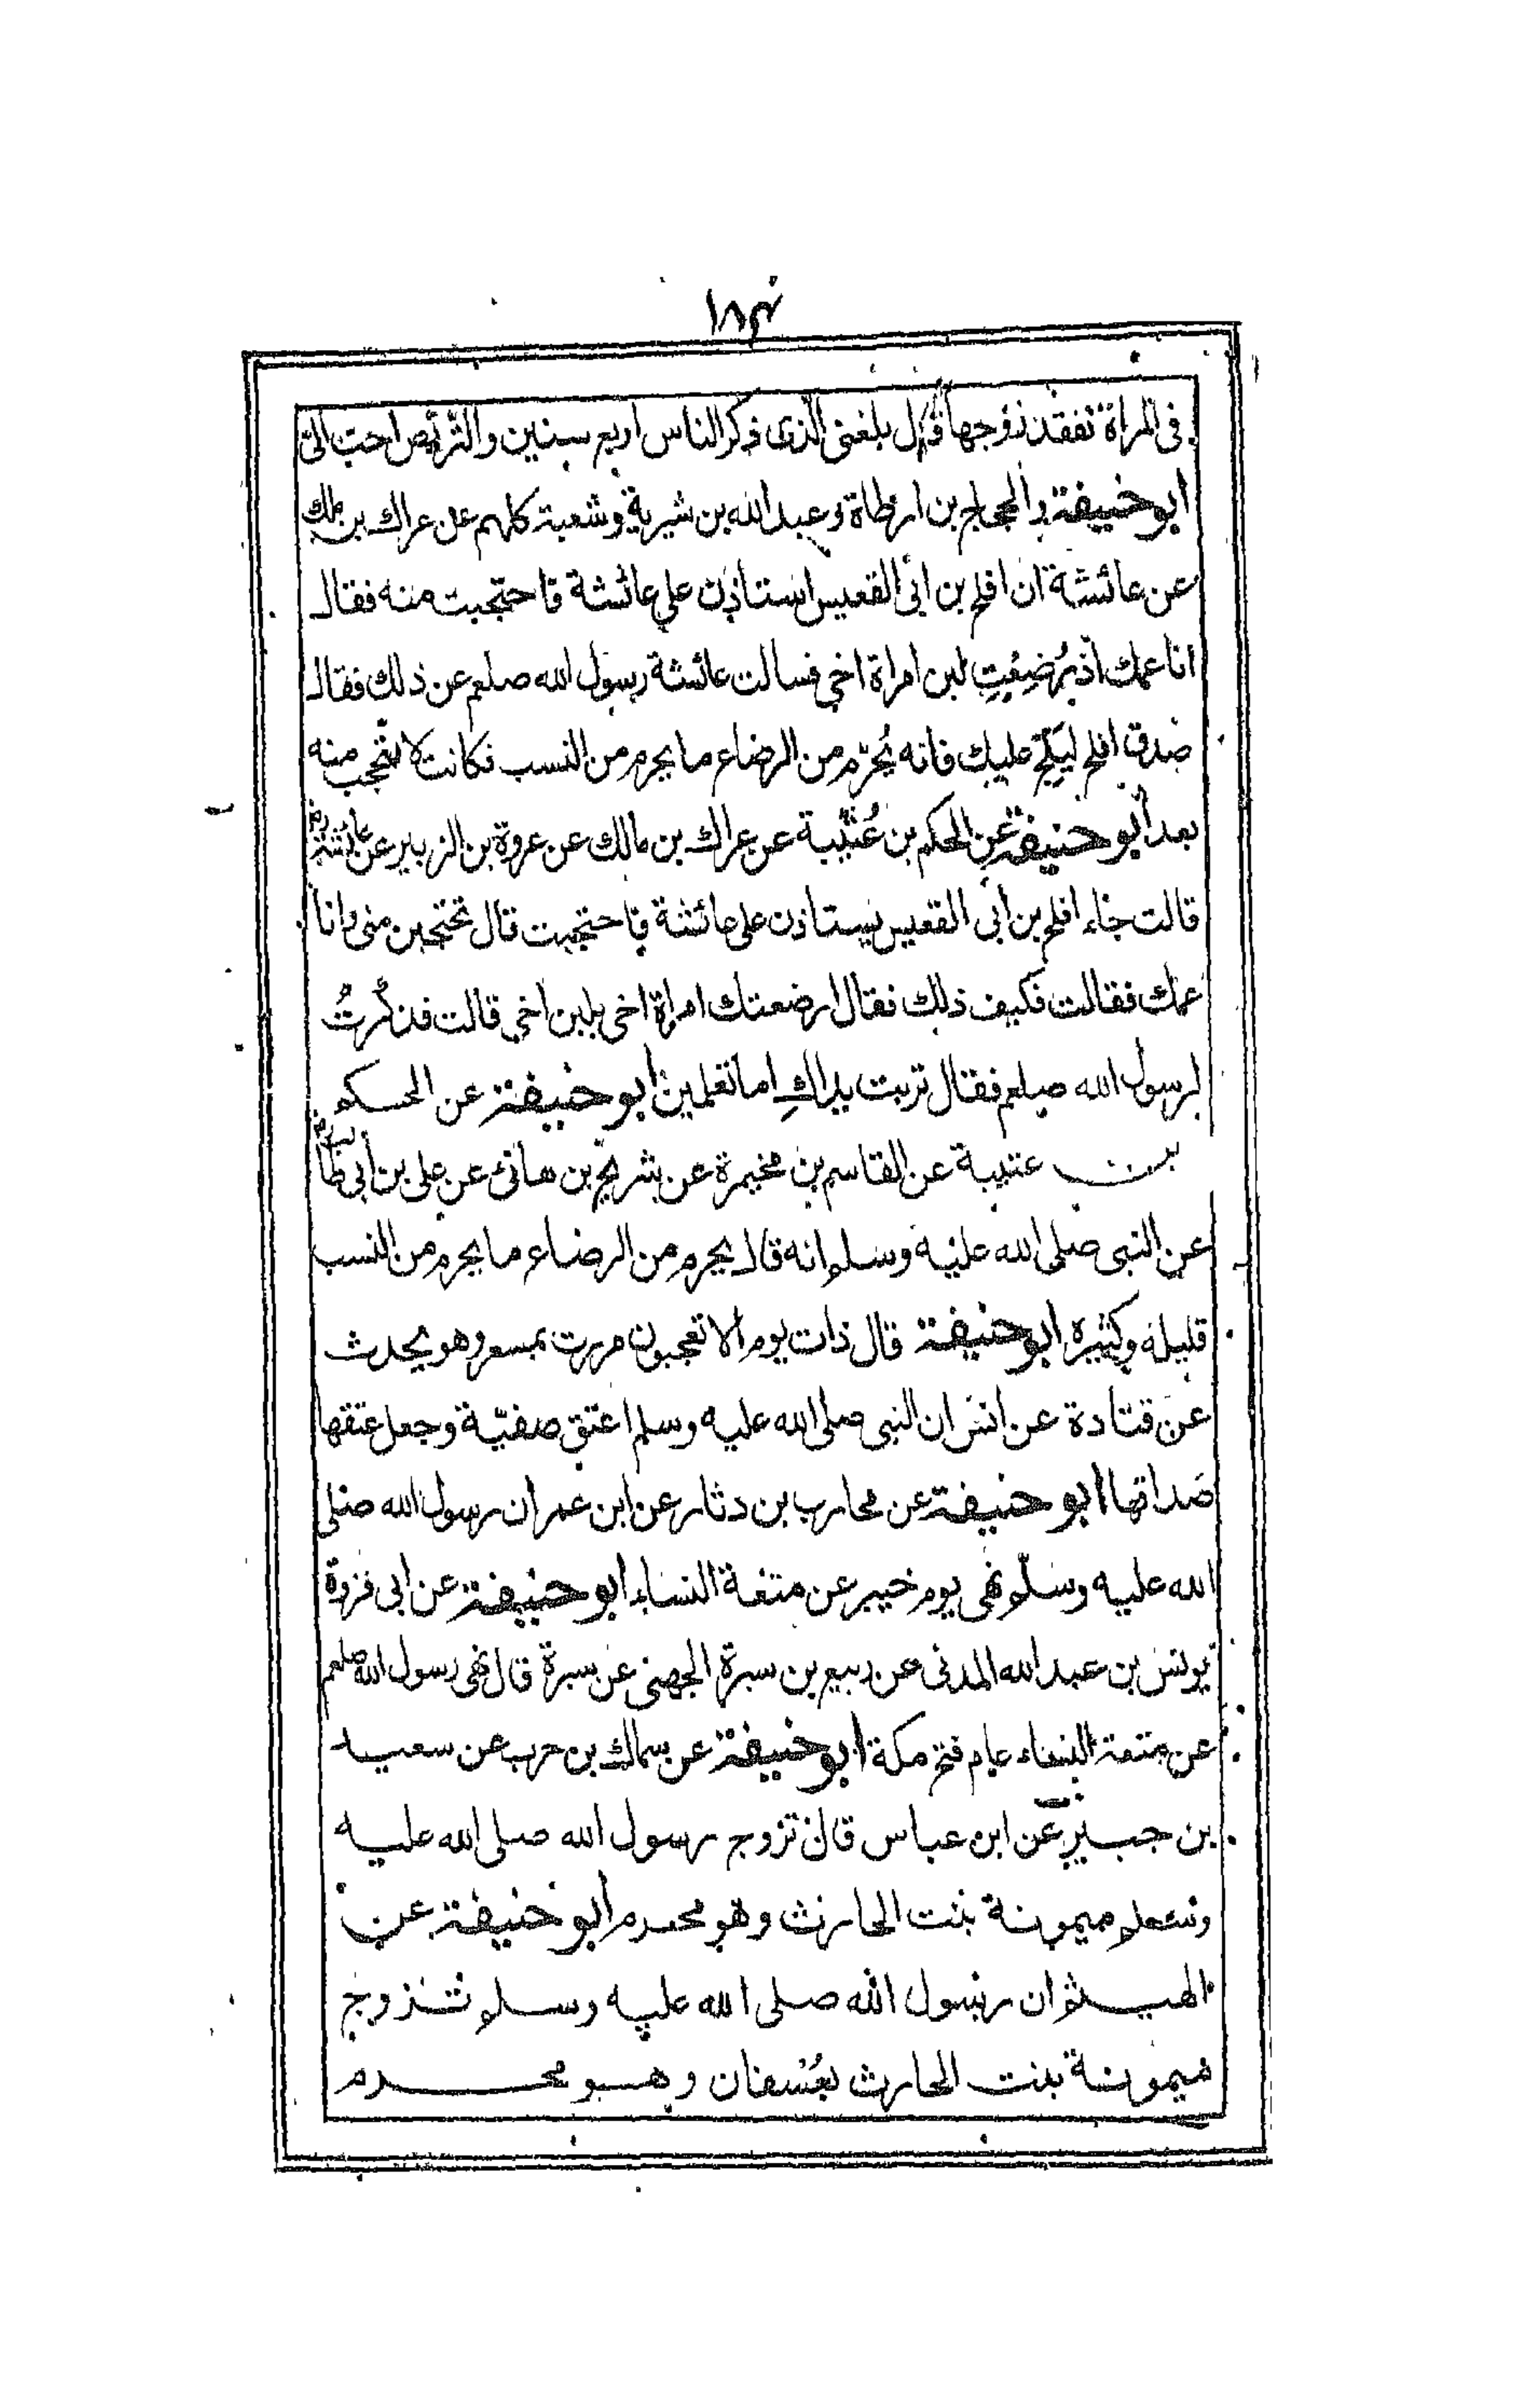 ١٨٣
فى المرأة تفقد زوجها قال بلغنى الذى ذكر الناس اربع سنين والتربص احب الىّ
ابو حنيفة والحجاج بن ارطاة وعبد الله بن شبرية وشعبة كلهم عن عراك بن ملك
عن عائشة ان افلح بن ابى القعيس استاذن على عائشة فاحتجبت منه فقال
انا عمك اذ رُضِعْتِ لبن امراة اخى فسالت عائشة رسول الله صلعم عن ذلك فقال
صدق افلح ليَلِجْ عليك فانه يُحَرّم من الرضاع ما يحرم من النسب فكانت لا تحتجب منه
بعد أبو حنيفة عن الحكم بن عُتَيْبة عن عراك بن مالك عن عروة بن الزبير عن عائشة رض
قالت جاء افلح بن أبى القعيس يستاذن على عائشة فاحتجبت قال تحتجبين منى وانا
عمك فقالت فكيف ذلك فقال ارضعتك امراة اخى بلبن اخى قالت فذكرتُ
لرسول الله صلعم فقال تربت يداكِ اما تعلمين أبو حنيفة عن الحكم
بن عتيبة عن القاسم بن مخيمرة عن شريح بن هانئ عن على بن أبى طالب رض
عن النبى صلى الله عليه وسلم انه قال يحرم من الرضاع ما يحرم من النسب
قليله وكثيره ابو حنيفة قال ذات يوم الا تعجبون مررت بمسعر وهو يحدث
عن قتادة عن انس ان النبى صلى الله عليه وسلم اعتق صفيّة وجعل عتقها
صداقها ابو حنيفة عن محارب بن دثار عن ابن عمر ان رسول الله صلى
الله عليه وسلم نهى يوم خيبر عن متعة النساء ابو حنيفة عن ابى فروة
يونس بن عبد الله المدنى عن ربيع بن سبرة الجهنى عن سبرة قال نهى رسول الله صلعم
عن متعة النساء عام فتح مكة ابو حنيفة عن سماك بن حرب عن سعيد
بن جبير عن ابن عباس قال تزوج رسول الله صلى الله عليه
وسلم ميمونة بنت الحارث وهو محرم أبو حنيفة عن
الهيثم ان رسول الله صلى الله عليه وسلم تزوج
ميمونة بنت الحارث بعُسفان وهو محرم